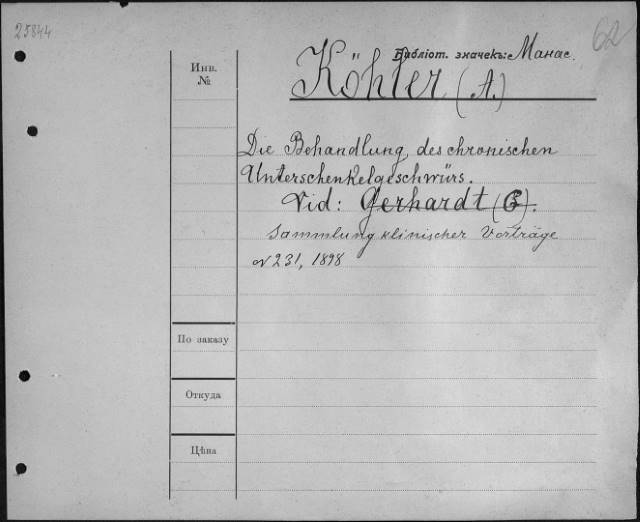 25844
62
Библіот. значекъ: Манас.
Инв.
№
Köhler (A.)
Die Behandlung des chronischen
Unterschenkelgeschwürs.
Vid: Gerhardt (C).
Sammlung klinischer Vorträge
N 231, 1898
По заказу
Откуда
Цѣна